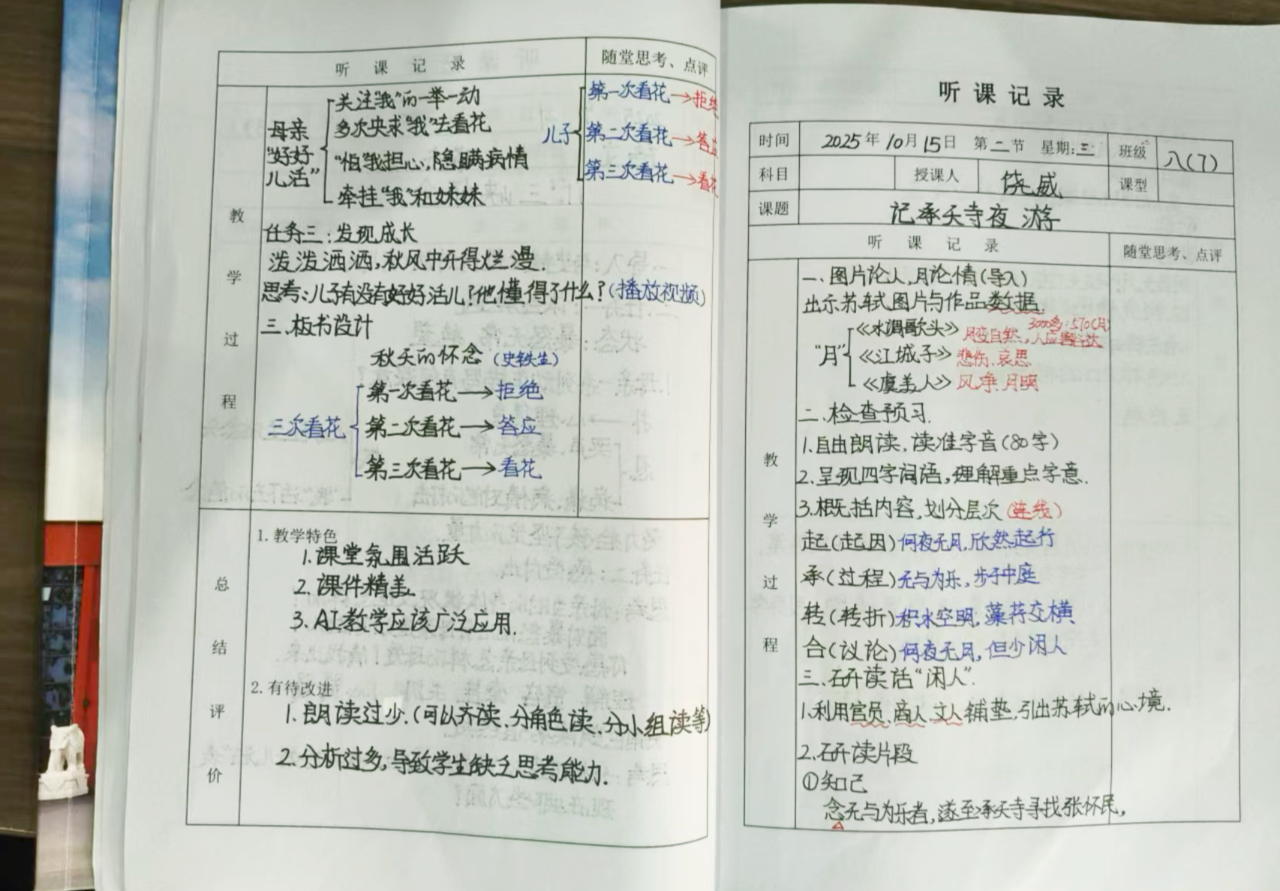 听 课 记 录
随堂思考、点评
教学过程
母亲"好好儿活"
关注"我"的一举一动
多次央求"我"去看花
"怕"我担心,隐瞒病情
牵挂"我"和妹妹
儿子
第一次看花→拒绝
第二次看花→答应
第三次看花→看花
任务三:发现成长
泼泼洒洒,秋风中开得烂漫.
思考:儿子有没有好好活儿?他懂得了什么?(播放视频)
三.板书设计
秋天的怀念(史铁生)
三次看花
第一次看花→拒绝
第二次看花→答应
第三次看花→看花
总结评价
1. 教学特色
1.课堂氛围活跃
2.课件精美.
3.AI教学应该广泛应用.
2. 有待改进
1.朗读过少.(可以齐读、分角色读、分小组读等)
2.分析过多,导致学生缺乏思考能力.
听课记录
时间 2025年10月15日 第二节 星期:三 班级 八(7)
科目 授课人 饶威 课型
课题 记承天寺夜游
听 课 记 录
随堂思考、点评
教学过程
一.图片论人,月论情(导入)
出示苏轼图片与作品数据.
"月"
《水调歌头》
《江城子》悲伤.哀思
《虞美人》风净.月明
二.检查预习.
1.自由朗读,读准字音(80字)
2.呈现四字词语,理解重点字意.
3.概括内容,划分层次(连线)
起(起因)何夜无月,欣然起行
承(过程)无与为乐,步于中庭
转(转折)积水空明,藻荇交横
合(议论)何夜无月,但少闲人
三.研读话"闲人".
1.利用官员、商人、文人铺垫,引出苏轼的心境.
2.研读片段
①知己
念无与为乐者,遂至承天寺寻找张怀民,